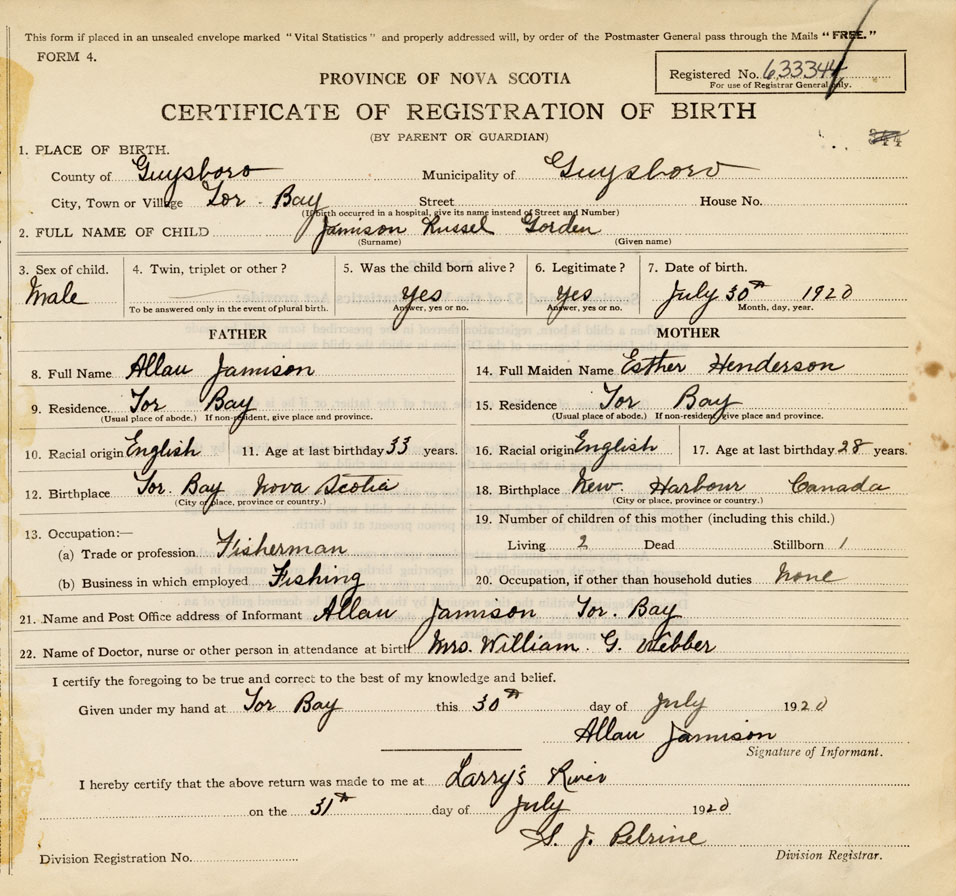 This form if placed in an unsealed envelope marked "Vital Statistics" and properly addressed will, by order of the Postmaster General pass through the Mails "FREE."
FORM 4.
PROVINCE OF NOVA SCOTIA
Registered No. 633344
For use of Registrar General only.
CERTIFICATE OF REGISTRATION OF BIRTH
(BY PARENT OR GUARDIAN)
1. PLACE OF BIRTH.
County of Guysboro Municipality of Guysboro
City, Town or Village Tor Bay Street House No.
(If birth occurred in a hospital, give its name instead of Street and Number)
2. FULL NAME OF CHILD Jamison Russel Gorden
(Surname) (Given name)
3. Sex of child. 4. Twin, triplet or other? 5. Was the child born alive? 6. Legitimate? 7. Date of birth.
Male Yes Yes July 30th 1920
To be answered only in the event of plural birth. Answer, yes or no. Answer, yes or no. Month, day, year.
FATHER MOTHER
8. Full Name Allan Jamison 14. Full Maiden Name Esther Henderson
9. Residence. Tor Bay 15. Residence Tor Bay
(Usual place of abode.) If non-resident, give place and province. (Usual place of abode.) If non-resident, give place and province.
10. Racial origin English 11. Age at last birthday 33 years. 16. Racial origin English 17. Age at last birthday 28 years.
12. Birthplace Tor Bay Nova Scotia 18. Birthplace New Harbour Canada
(City or place, province or country.) (City or place, province or country.)
13. Occupation:— 19. Number of children of this mother (including this child.)
(a) Trade or profession Fisherman Living 2 Dead Stillborn 1
(b) Business in which employed Fishing 20. Occupation, if other than household duties None
21. Name and Post Office address of Informant Allan Jamison Tor Bay
22. Name of Doctor, nurse or other person in attendance at birth Mrs. William G. Webber
I certify the foregoing to be true and correct to the best of my knowledge and belief.
Given under my hand at Tor Bay this 30th day of July 1920
Allan Jamison
Signature of Informant.
I hereby certify that the above return was made to me at Larry's River
on the 31st day of July 1920
S. J. Pelrine
Division Registration No. Division Registrar.